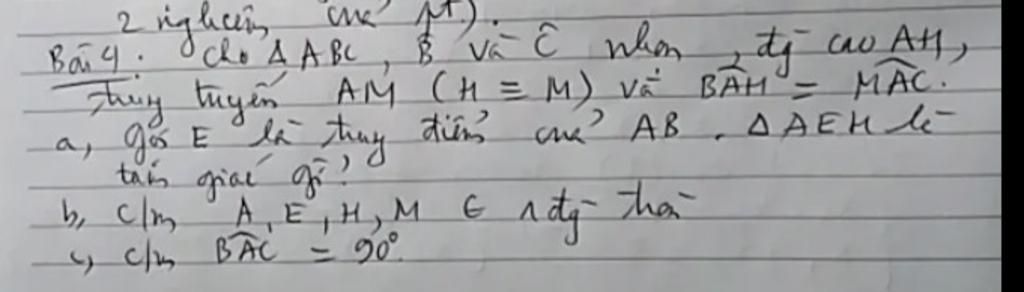 2 nghiệm của pt).
Bài 4. Cho Δ ABC, B̂ và Ĉ nhọn, đg cao AH,
trung tuyến AM (H ≡ M) và BÂH = MÂC.
a, gọi E là trung điểm của AB. Δ AEH là
tam giác gì?
b, c/m A, E, H, M ∈ 1 đg tròn
c, c/m BÂC = 90°.